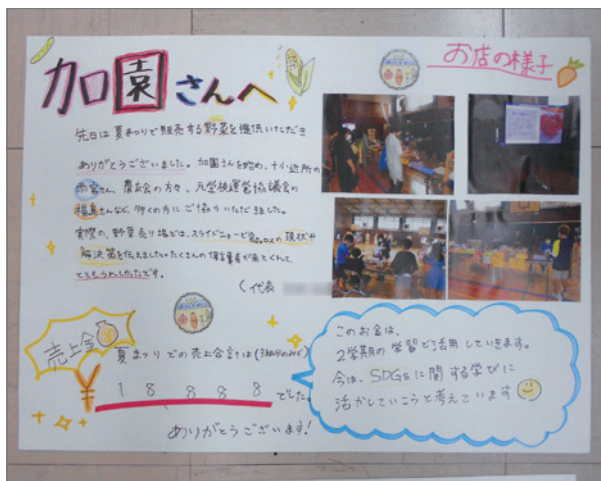 加園さんへ
先日は夏まつりで販売する野菜を提供いただき
ありがとうございました。加園さんを始め、十小近所の
さん、農友会の方々、元学校運営協議会の
福島さんなど、多くの方にご協力いただきました。
実際の、野菜売り場では、スライドショーで の現状や
解決策を伝えました。たくさんの保護者が来てくれて、
とてもうれしかったです。
代表
お店の様子
売上金
夏まつりでの売上合計は
¥18888でした。
ありがとうございます!
このお金は、
2学期の学習で活用していきます。
今は、SDGsに関する学びに
活かしていこうと考えています